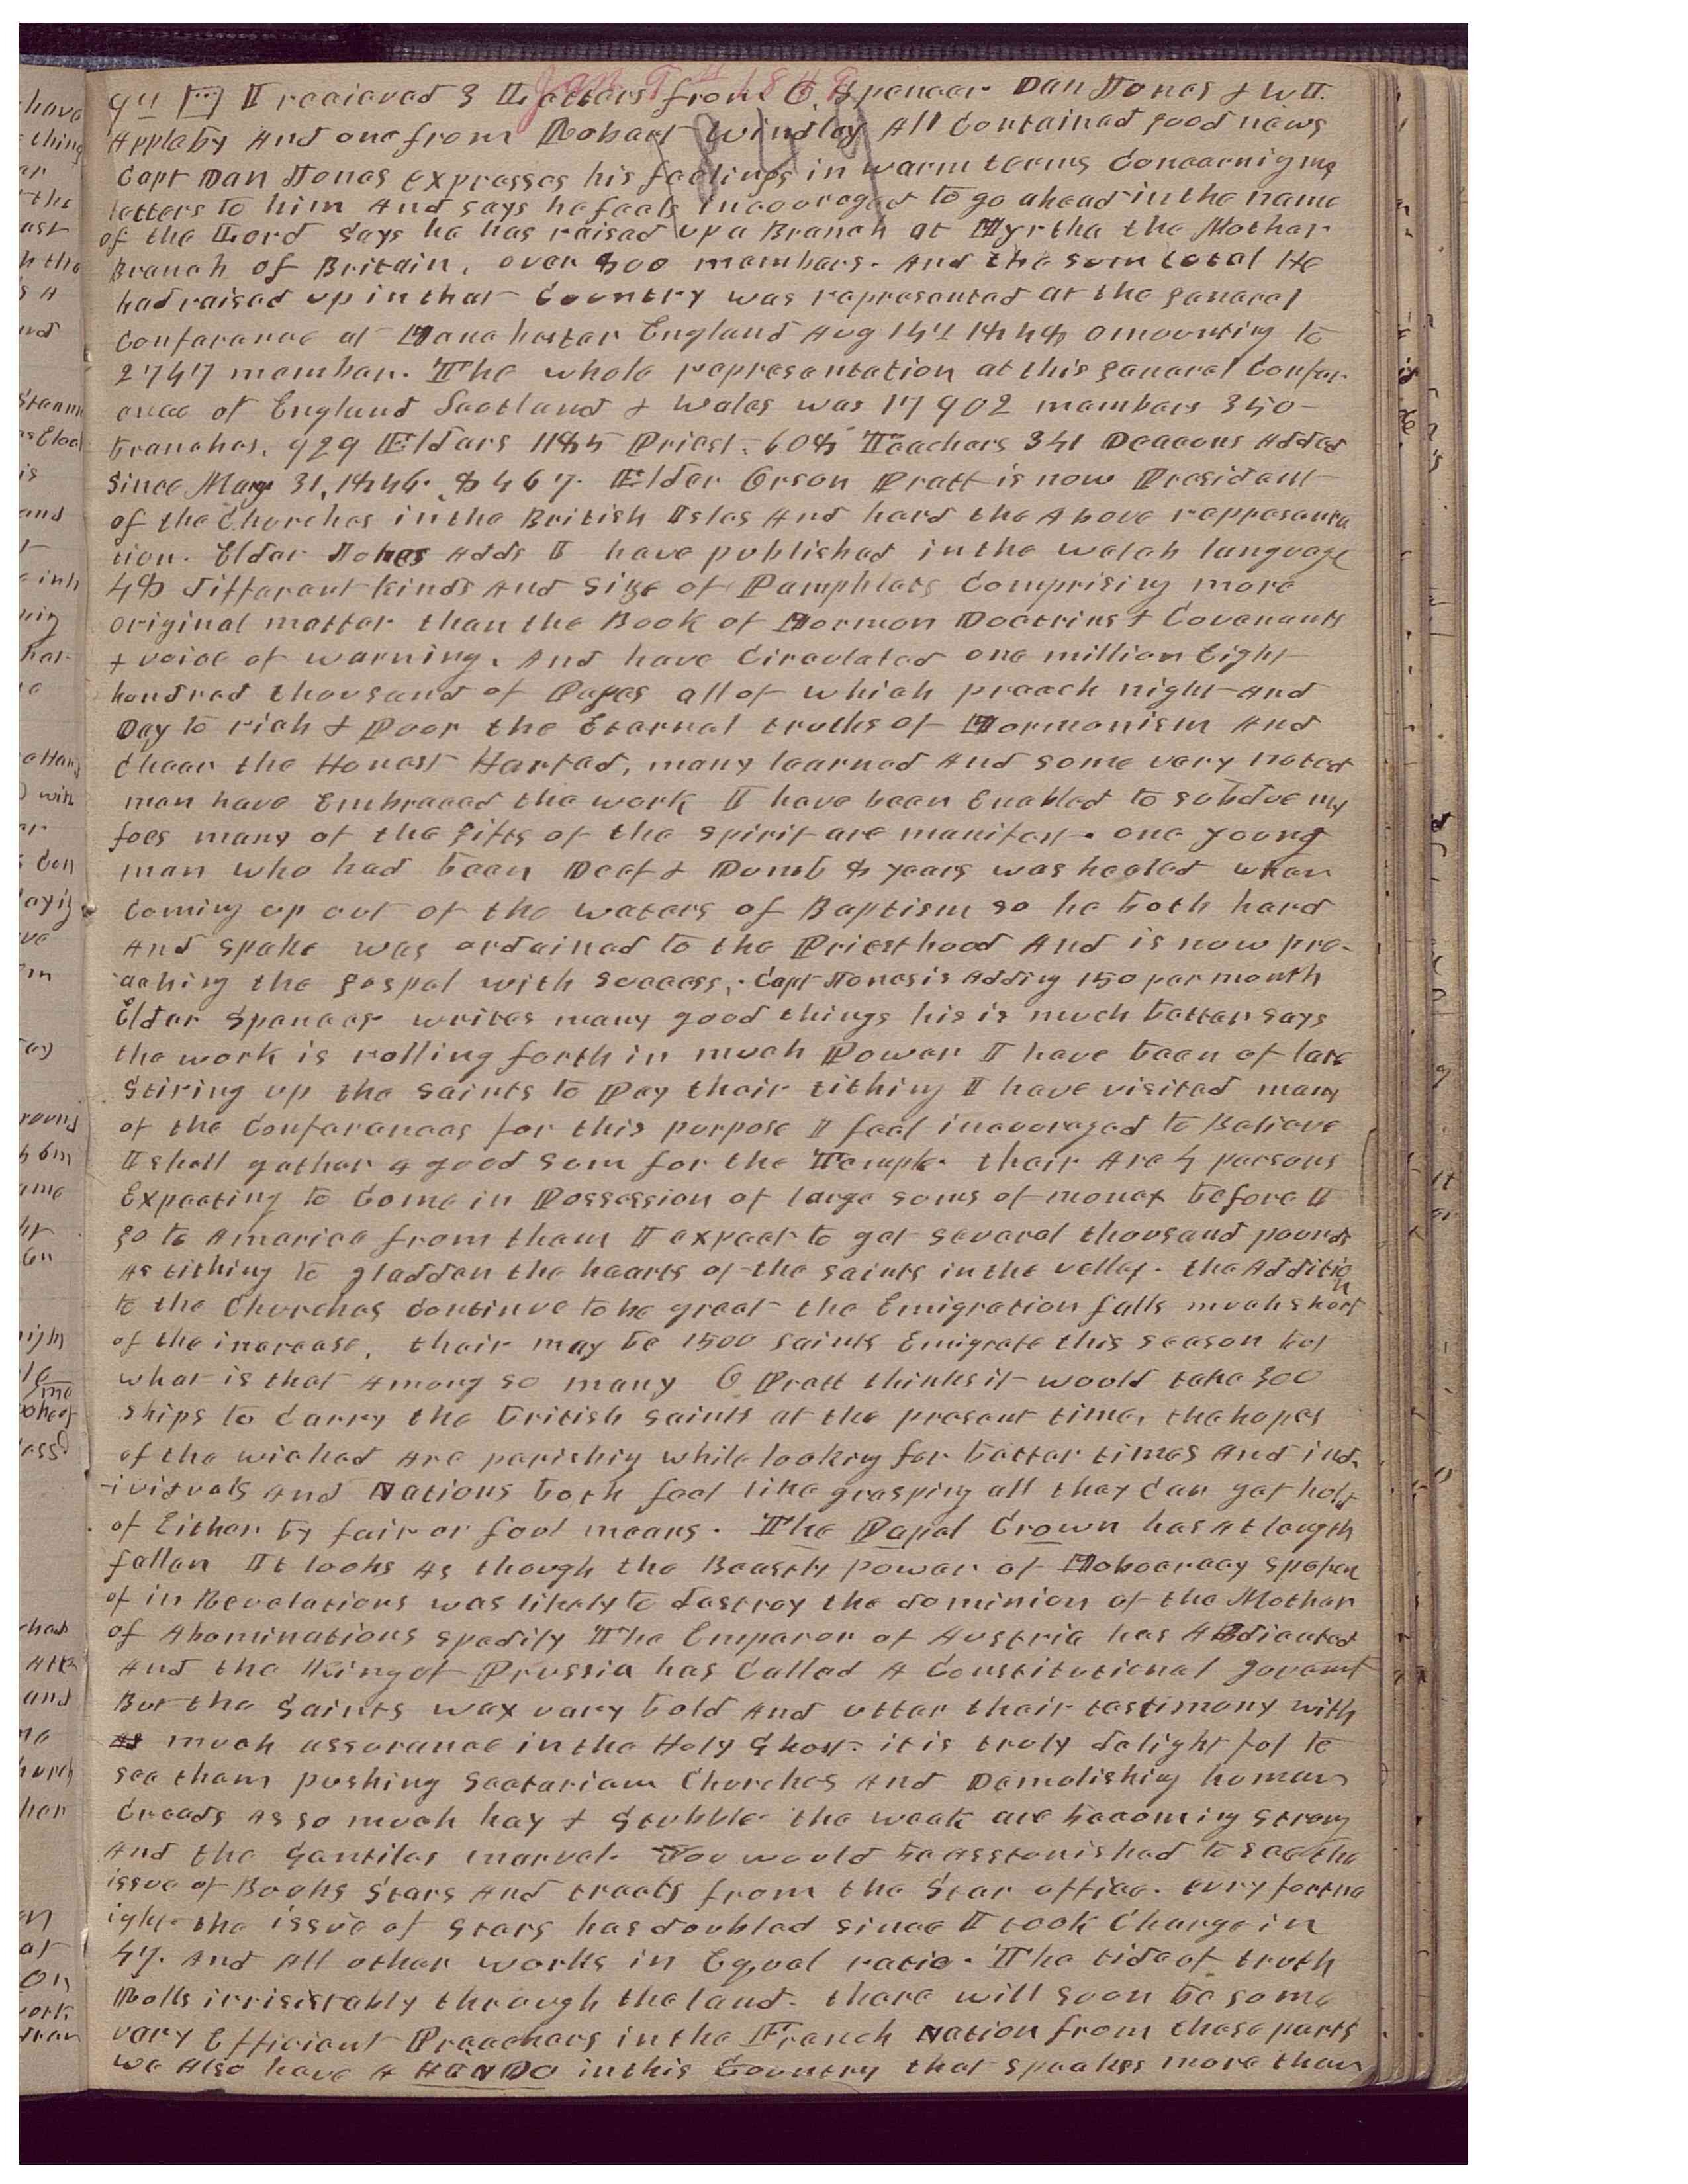 Jan 9th 1849
9th I recieved 3 Letters from O. Spencer Dan Jones & W. I.
Appleby And one from Robert Windley All contained good news
Capt Dan Jones expresses his feelings in warm terms Concernig my
letters to him And says he feels incouraged to go ahead in the name
of the Lord says he has raised up a Branch at Myrtha the Mother
Branch of Britain, over 800 members. And the sum total He
had raised up in that Country was represented at the general
Conferance at Manchester England Aug 14th 1848 amounting to
2747 member. The whole representation at this general Confer-
ence of England Scotland & Wales was 17902 members 350
branches, 929 Elders 1185 Priest, 608 Teachers 341 Deacons Added
Since May 31, 1846. 8467. Elder Orson Pratt is now President
of the Churches in the British Isles And hard the Above reppresenta
tion. Elder Jones Adds I have published in the welch language
48 different kinds And Size of Pamphlets Comprising more
original matter than the Book of Mormon Doctrins & Covenants
& voice of warning. And have Circulated one million Eight
hundred thousand of Pages all of which preach night And
Day to rich & Poor the Eternal truths of Mormonism And
Cheer the Honest Harted, many learned And some very noted
men have Embraced the work I have been Enabled to subdue my
foes many of the gifts of the spirit are manifest. one young
man who had been Deef & Dumb 8 years was healed when
Coming up out of the waters of Baptism so he both hard
And spake was ordained to the Priesthood And is now pre-
aching the gospel with success. Capt Jones is Adding 150 per month
Elder Spencer writes many good things his is much better says
the work is rolling forth in much Power I have been of late
Stiring up the saints to Pay their tithing I have visited many
of the Conferances for this purpose I feel incouraged to Believe
I shall gather a good sum for the Temple. their Are 4 persons
Expecting to Come in Possession of large sums of money before I
go to America from them I expect to get several thousand pounds
As tithing to gladden the hearts of the saints in the valley. the Addition
to the Churches Continue to be great the Emigration falls much short
of the increase, their may be 1500 saints Emigrate this season but
what is that Among so many O Pratt thinks it would take 300
ships to Carry the british saints at the present time, the hopes
of the wicked Are perishing while looking for better times And ind-
-ividuals And Nations both feel like grasping all they Can get hold
of Either by fair or foul means. The Papal Crown has At length
fallen It looks As though the Beastly power of Mobocracy spoken
of in Revelations was likely to destroy the dominion of the Mother
of Abominations spedily The Emperor of Austria has Abdicated
And the King of Prussia has Called A Constitutional goverment
But the Saints wax very bold And utter their testimony with
As much assurance in the Holy Ghost. it is truly delightful to
see them pushing Sectarian Churches And Demolishing human
Creeds As so much hay & Stubble the weak are becoming strong
And the Gentiles marvel. You would be asstonished to see the
issue of Books Stars And tracts from the Star office. evry fortne
ight the issue of Stars has doubled since I took Charge in
47. And All other works in Equal ratio. The tide of truth
Rolls irrisistably through the land. there will soon be some
very Efficient Preachers in the French Nation from these parts
we Also have A HinDo in this Country that speakes more than